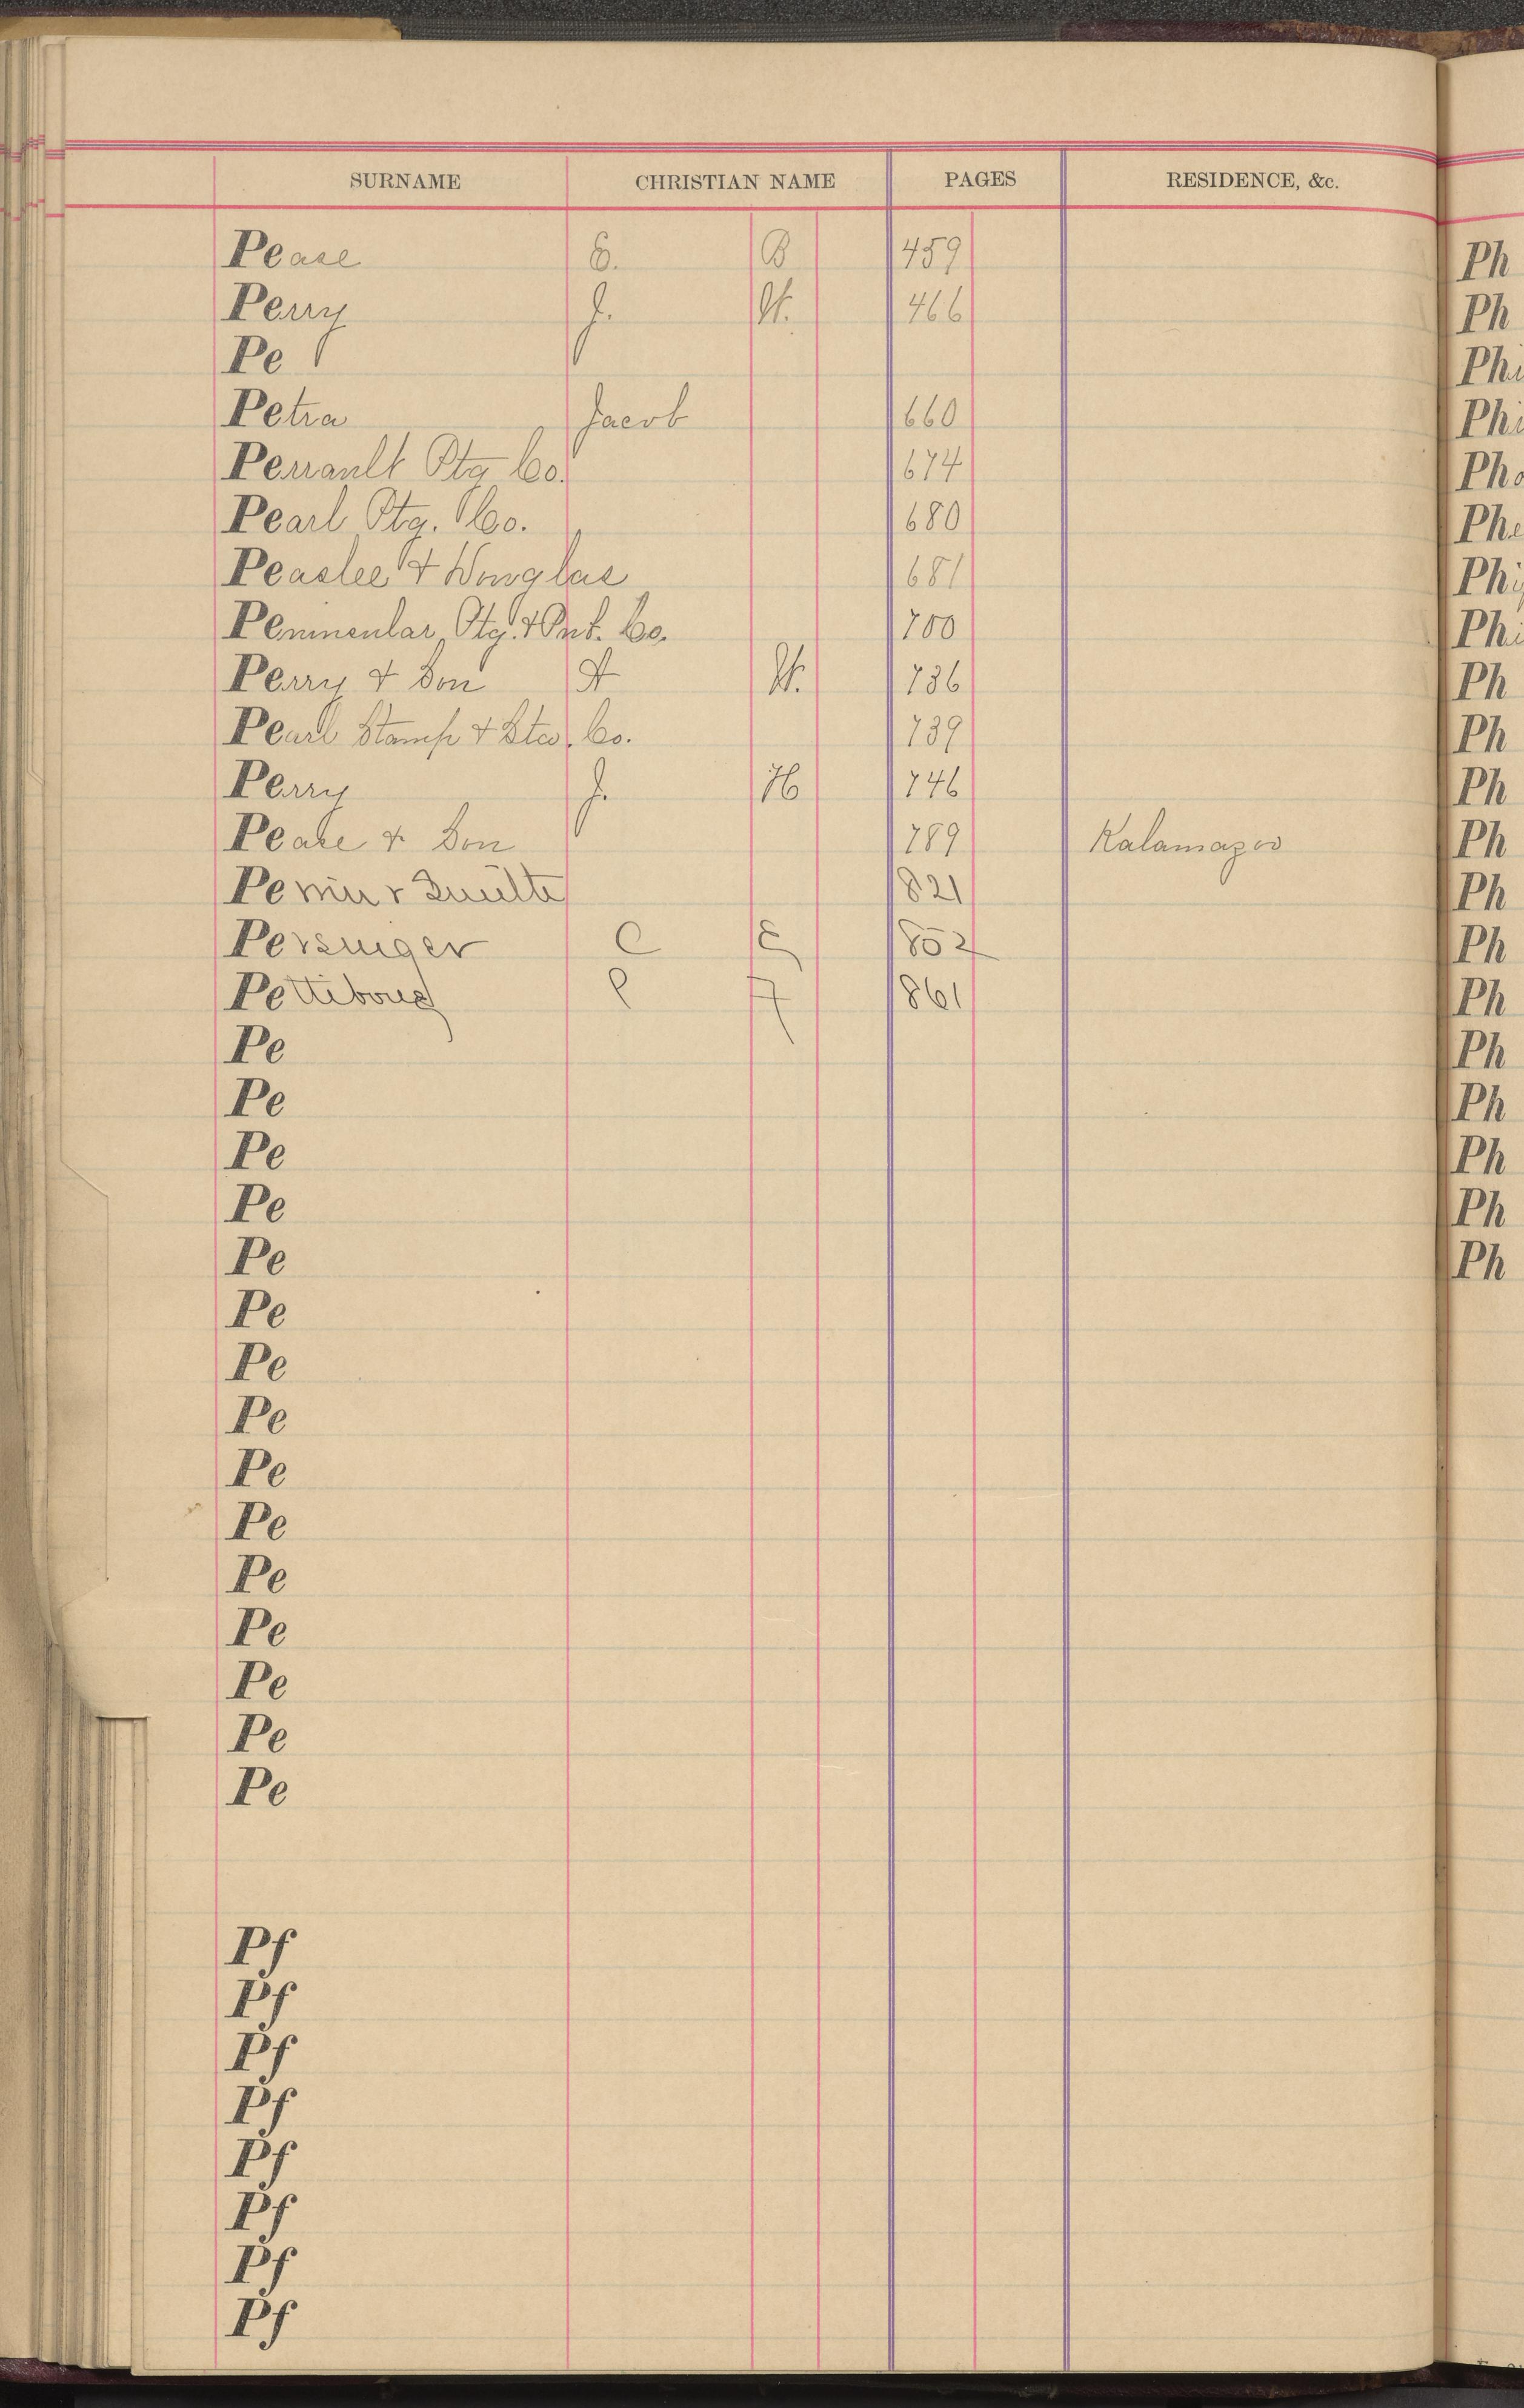 SURNAME CHRISTIAN NAME PAGES RESIDENCE, &c.
Pease E. B 459
Perry J. W. 466
Pe
Petra Jacob 660
Perrault Ptg Co. 674
Pearl Ptg. Co. 680
Peaslee & Douglas 681
Peninsular Ptg. & Co. 700
Perry & Son A W. 736
Pearl Stamp & Co. 739
Perry J. H 746
Pease & Son 789 Kalamazoo
Pe & 821
Persinger C E 852
Pettibone P F 861
Pe
Pe
Pe
Pe
Pe
Pe
Pe
Pe
Pe
Pe
Pe
Pe
Pe
Pe
Pe
Pf
Pf
Pf
Pf
Pf
Pf
Pf
Pf
Ph
Ph
Phi
Phi
Pho
Phe
Phi
Phi
Ph
Ph
Ph
Ph
Ph
Ph
Ph
Ph
Ph
Ph
Ph
Ph